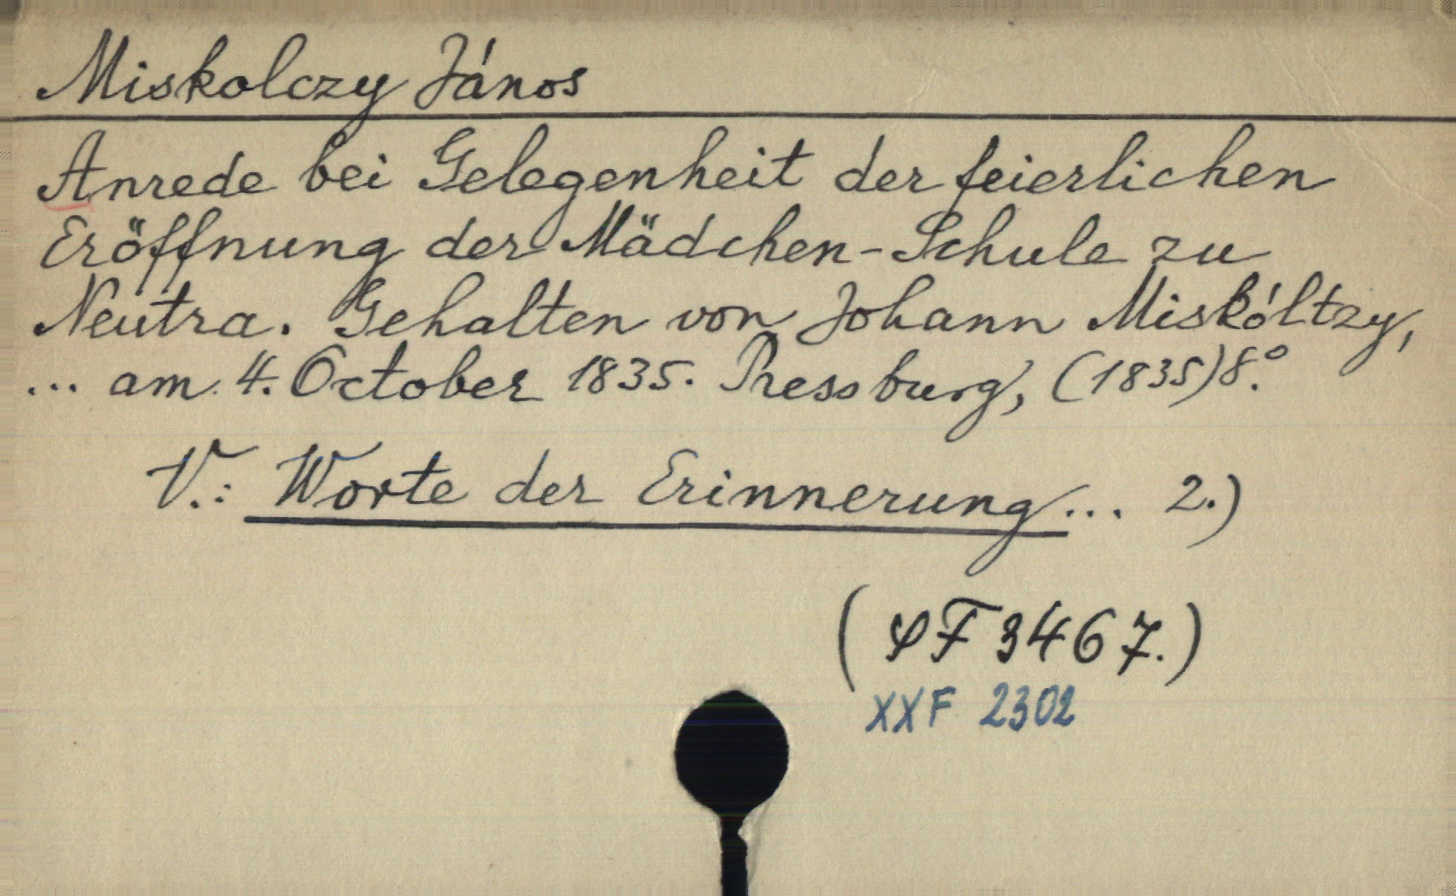 Miskolczy János
Anrede bei Gelegenheit der feierlichen
Eröffnung der Mädchen-Schule zu
Neutra. Gehalten von Johann Miskóltzy,
... am 4. October 1835. Pressburg, (1835) 8.°
V.: Worte der Erinnerung ... 2.)
( φF 3467.)
XXF 2302